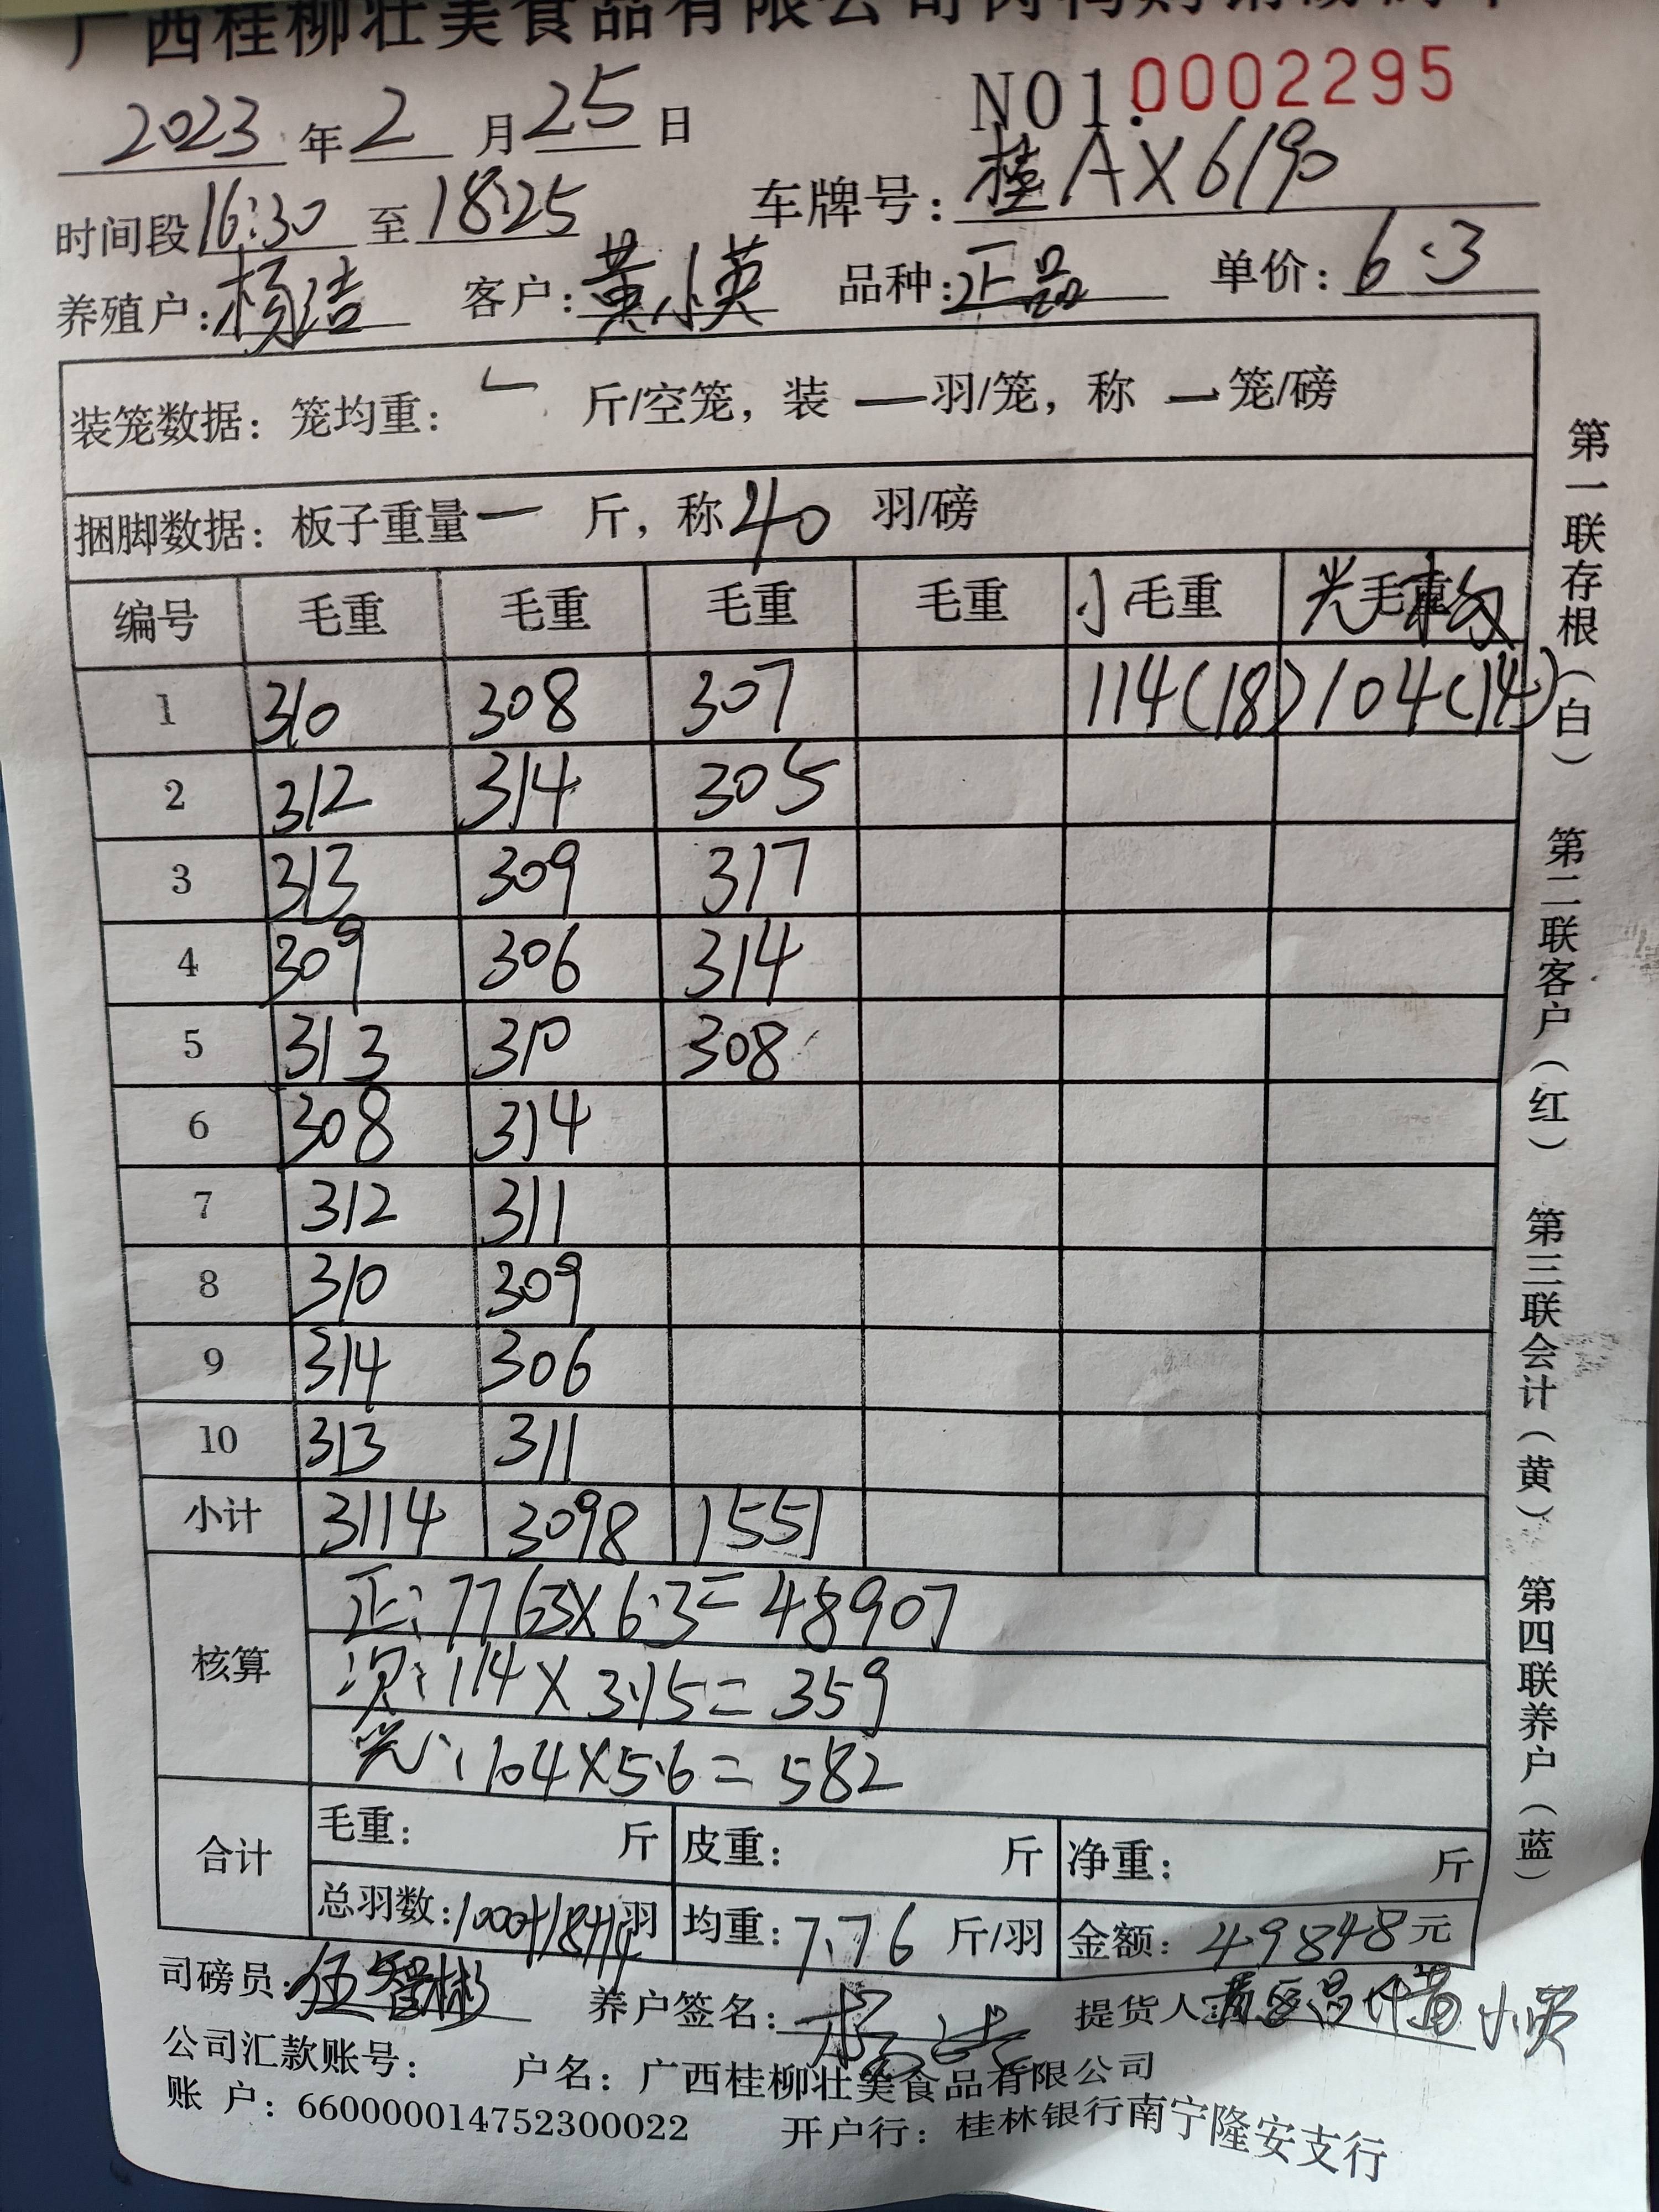 广西桂柳壮美食品有限公司
2023年2月25日 NO1.0002295
时间段16:30至18:25 车牌号：桂AX6190
养殖户：杨洁 客户：黄小英 品种：正品 单价：6.3
装笼数据：笼均重：一 斤/空笼，装 一 羽/笼，称 一 笼/磅
捆脚数据：板子重量 一 斤，称 40 羽/磅
编号 毛重 毛重 毛重 毛重 小毛重 光毛重
1 310 308 307 114(18) 104(14)
2 312 314 305
3 313 309 317
4 309 306 314
5 313 310 308
6 308 314
7 312 311
8 310 309
9 314 306
10 313 311
小计 3114 3098 1551
核算 正：7763×6.3=48907
次：114×3.15=359
光：104×5.6=582
合计 毛重： 斤 皮重： 斤 净重： 斤
总羽数：1000+18+14羽 均重：7.76 斤/羽 金额：49848元
司磅员：伍智彬 养户签名：杨洁 提货人：
公司汇款账号： 户名：广西桂柳壮美食品有限公司
账 户：660000014752300022 开户行：桂林银行南宁隆安支行
第一联存根（白） 第二联客户（红） 第三联会计（黄） 第四联养户（蓝）